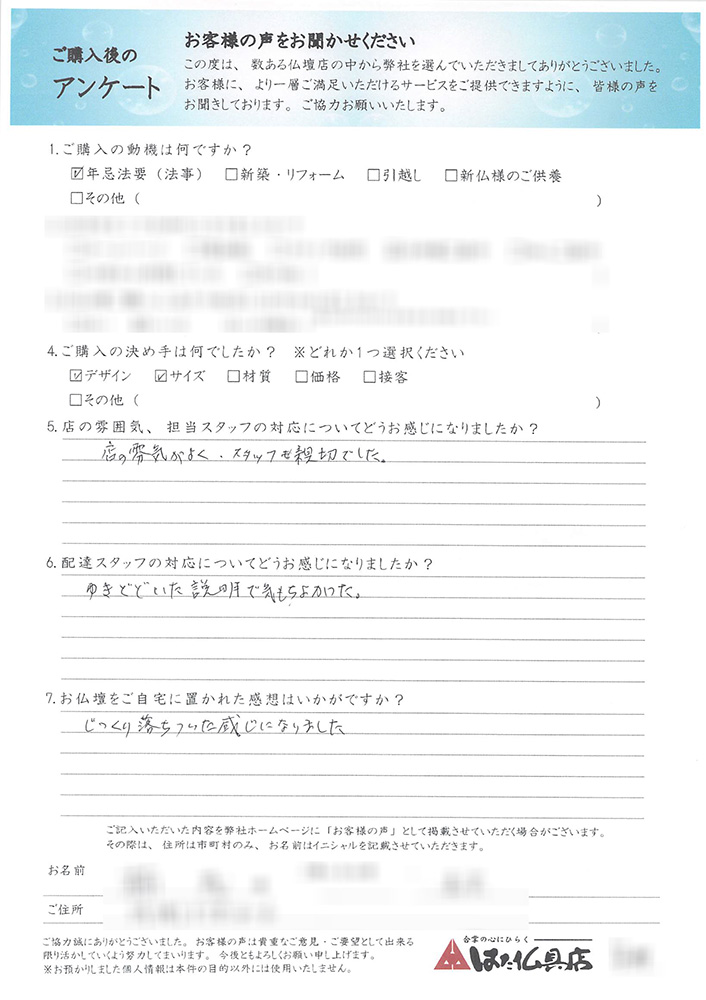 ご購入後の
アンケート
お客様の声をお聞かせください
この度は、数ある仏壇店の中から弊社を選んでいただきましてありがとうございました。
お客様に、より一層ご満足いただけるサービスをご提供できますように、皆様の声を
お聞きしております。ご協力お願いいたします。
1.ご購入の動機は何ですか？
☑年忌法要（法事） □新築・リフォーム □引越し □新仏様のご供養
□その他（ ）
4.ご購入の決め手は何でしたか？ ※どれか1つ選択ください
☑デザイン ☑サイズ □材質 □価格 □接客
□その他（ ）
5.店の雰囲気、担当スタッフの対応についてどうお感じになりましたか？
店の雰気がよく、スタッフも親切でした。
6.配達スタッフの対応についてどうお感じになりましたか？
ゆきとどいた説明で気もちよかった。
7.お仏壇をご自宅に置かれた感想はいかがですか？
じっくり落ちついた感じになりました
ご記入いただいた内容を弊社ホームページに「お客様の声」として掲載させていただく場合がございます。
その際は、住所は市町村のみ、お名前はイニシャルを記載させていただきます。
お名前
ご住所
ご協力誠にありがとうございました。お客様の声は貴重なご意見・ご要望として出来る
限り活かしていくよう努力してまいります。今後ともよろしくお願い申し上げます。
※お預かりしました個人情報は本件の目的以外には使用いたしません。
合掌の心にひらく
はた仏具店